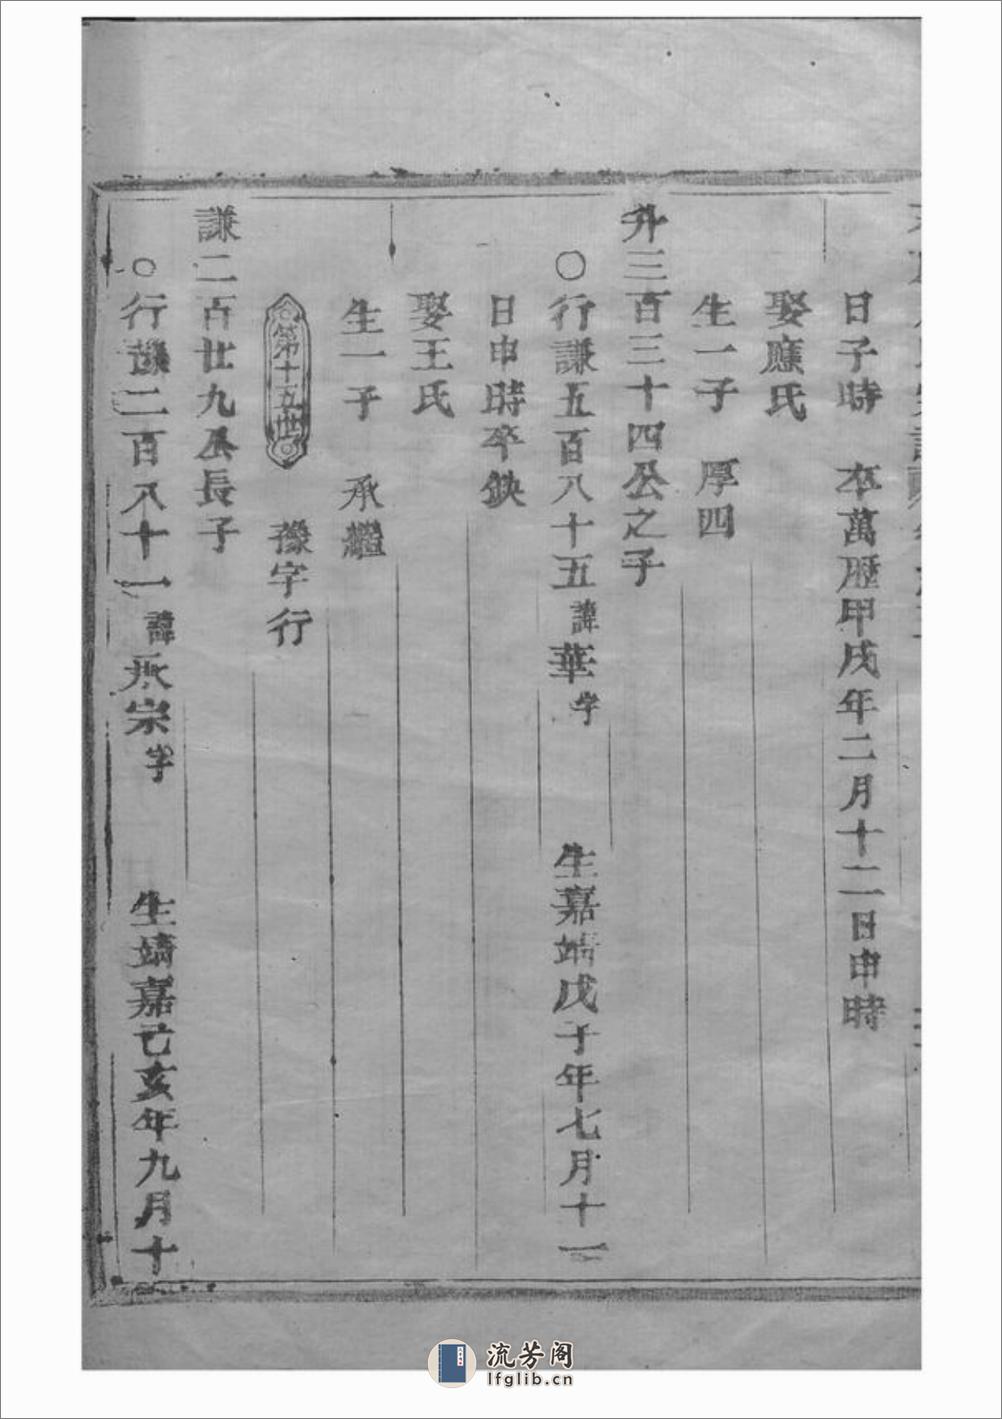 日子時 卒萬歷甲戌年二月十二日申時
娶應氏
生一子 厚四
升三百三十四公之子
○行謙五百八十五諱華字 生嘉靖戊子年七月十一
日申時卒缺
娶王氏
生一子 承繼
第十五世 豫字行
謙二百廿九公長子
○行豫二百八十一諱承宗字 生靖嘉己亥年九月十
流芳阁
lfglib.cn